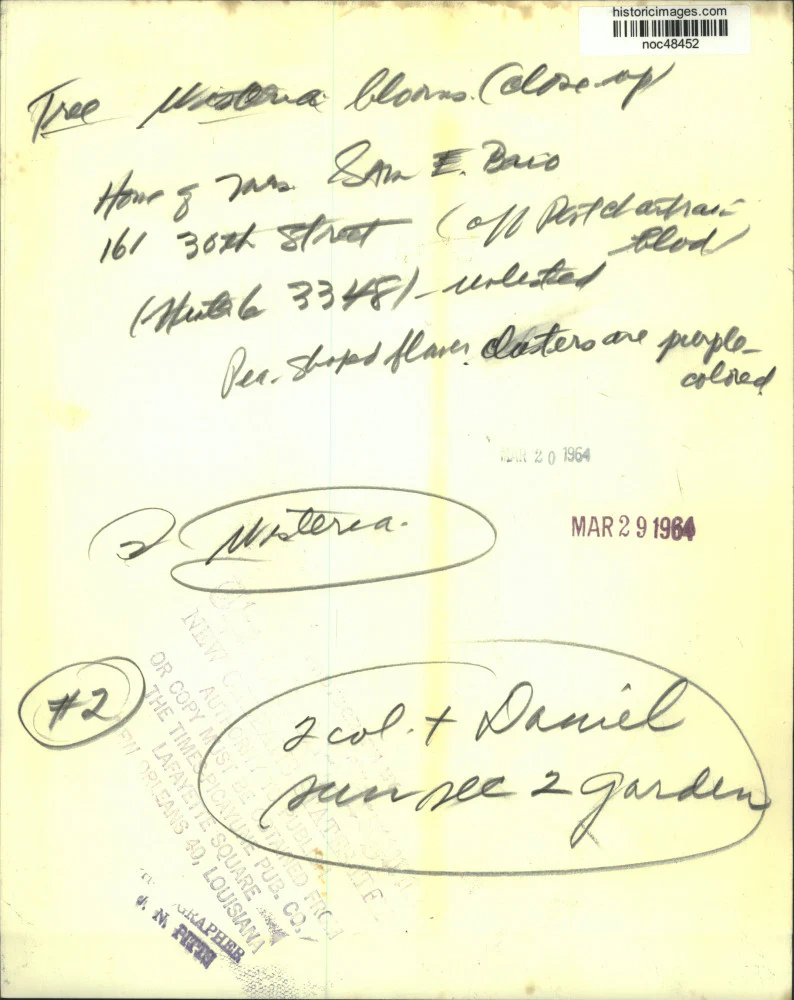 historicimages.com
noc48452
Tree Wisteria blooms (close-up
Home of Mrs. Sam E. Baio
161 30th Street (off Pontchartrain
blvd
3348) - unlisted
Pea-shaped flower clusters are purple-
colored
MAR 20 1964
2 Wisteria.
MAR 29 1964
#2
2 col. + Daniel
sun sec 2 garden
NEW
OR COPY MUST BE
THE TIMES-PICAYUNE PUB. CO.
LAFAYETTE SQUARE
NEW ORLEANS 40, LOUISIANA
J. N. PITTS